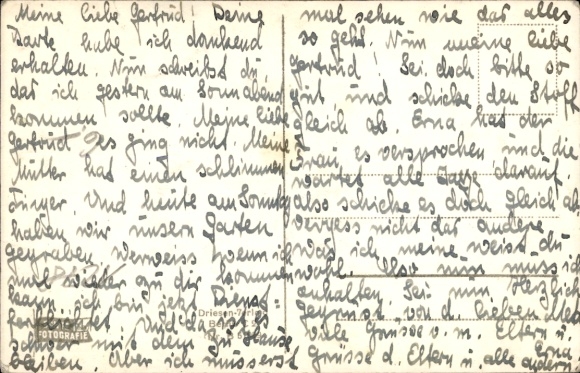 Meine liebe Gertrud! Deine
Karte habe ich dankend
erhalten. Nun schreibst du,
das ich gestern am Sonnabend
kommen sollte. Meine liebe
Gertrud es ging nicht. Meine
Mutter hat einen schlimmen
Finger. Und heute am Sonntag
haben wir unsern Garten
gegraben. Werweiss wenn ich
mal wieder zu dir kommen
kann, ich bin jetzt Dienst=
und da ist es
schwer mit dem zu Hause
bleiben. Aber ich müsserst
mal sehen wie das alles
so geht. Nun meine liebe
Gertrud! Sei doch bitte so
gut, und schicke den Stoff
gleich ab. Erna hat der
Frau es versprochen und die
wartet alle Tage darauf.
Also schicke es doch gleich ab
vergess nicht das andere
was ich meine weist du
wohl. Also nun muss ich
anhalten. Sei nun Herzlich
Gegrüsst von d. lieben
viele Grüsse v. m. Eltern u.
Grüsse d. Eltern u. alle andern.
Erna
Driesen-Verlag
Berlin
FOTOGRAFIE